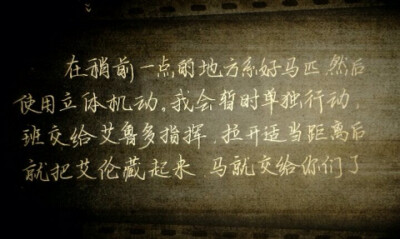 在稍前一点的地方系好马匹 然后
使用立体机动。我会暂时单独行动,
班交给艾鲁多指挥,拉开适当距离后
就把艾伦藏起来 马就交给你们了